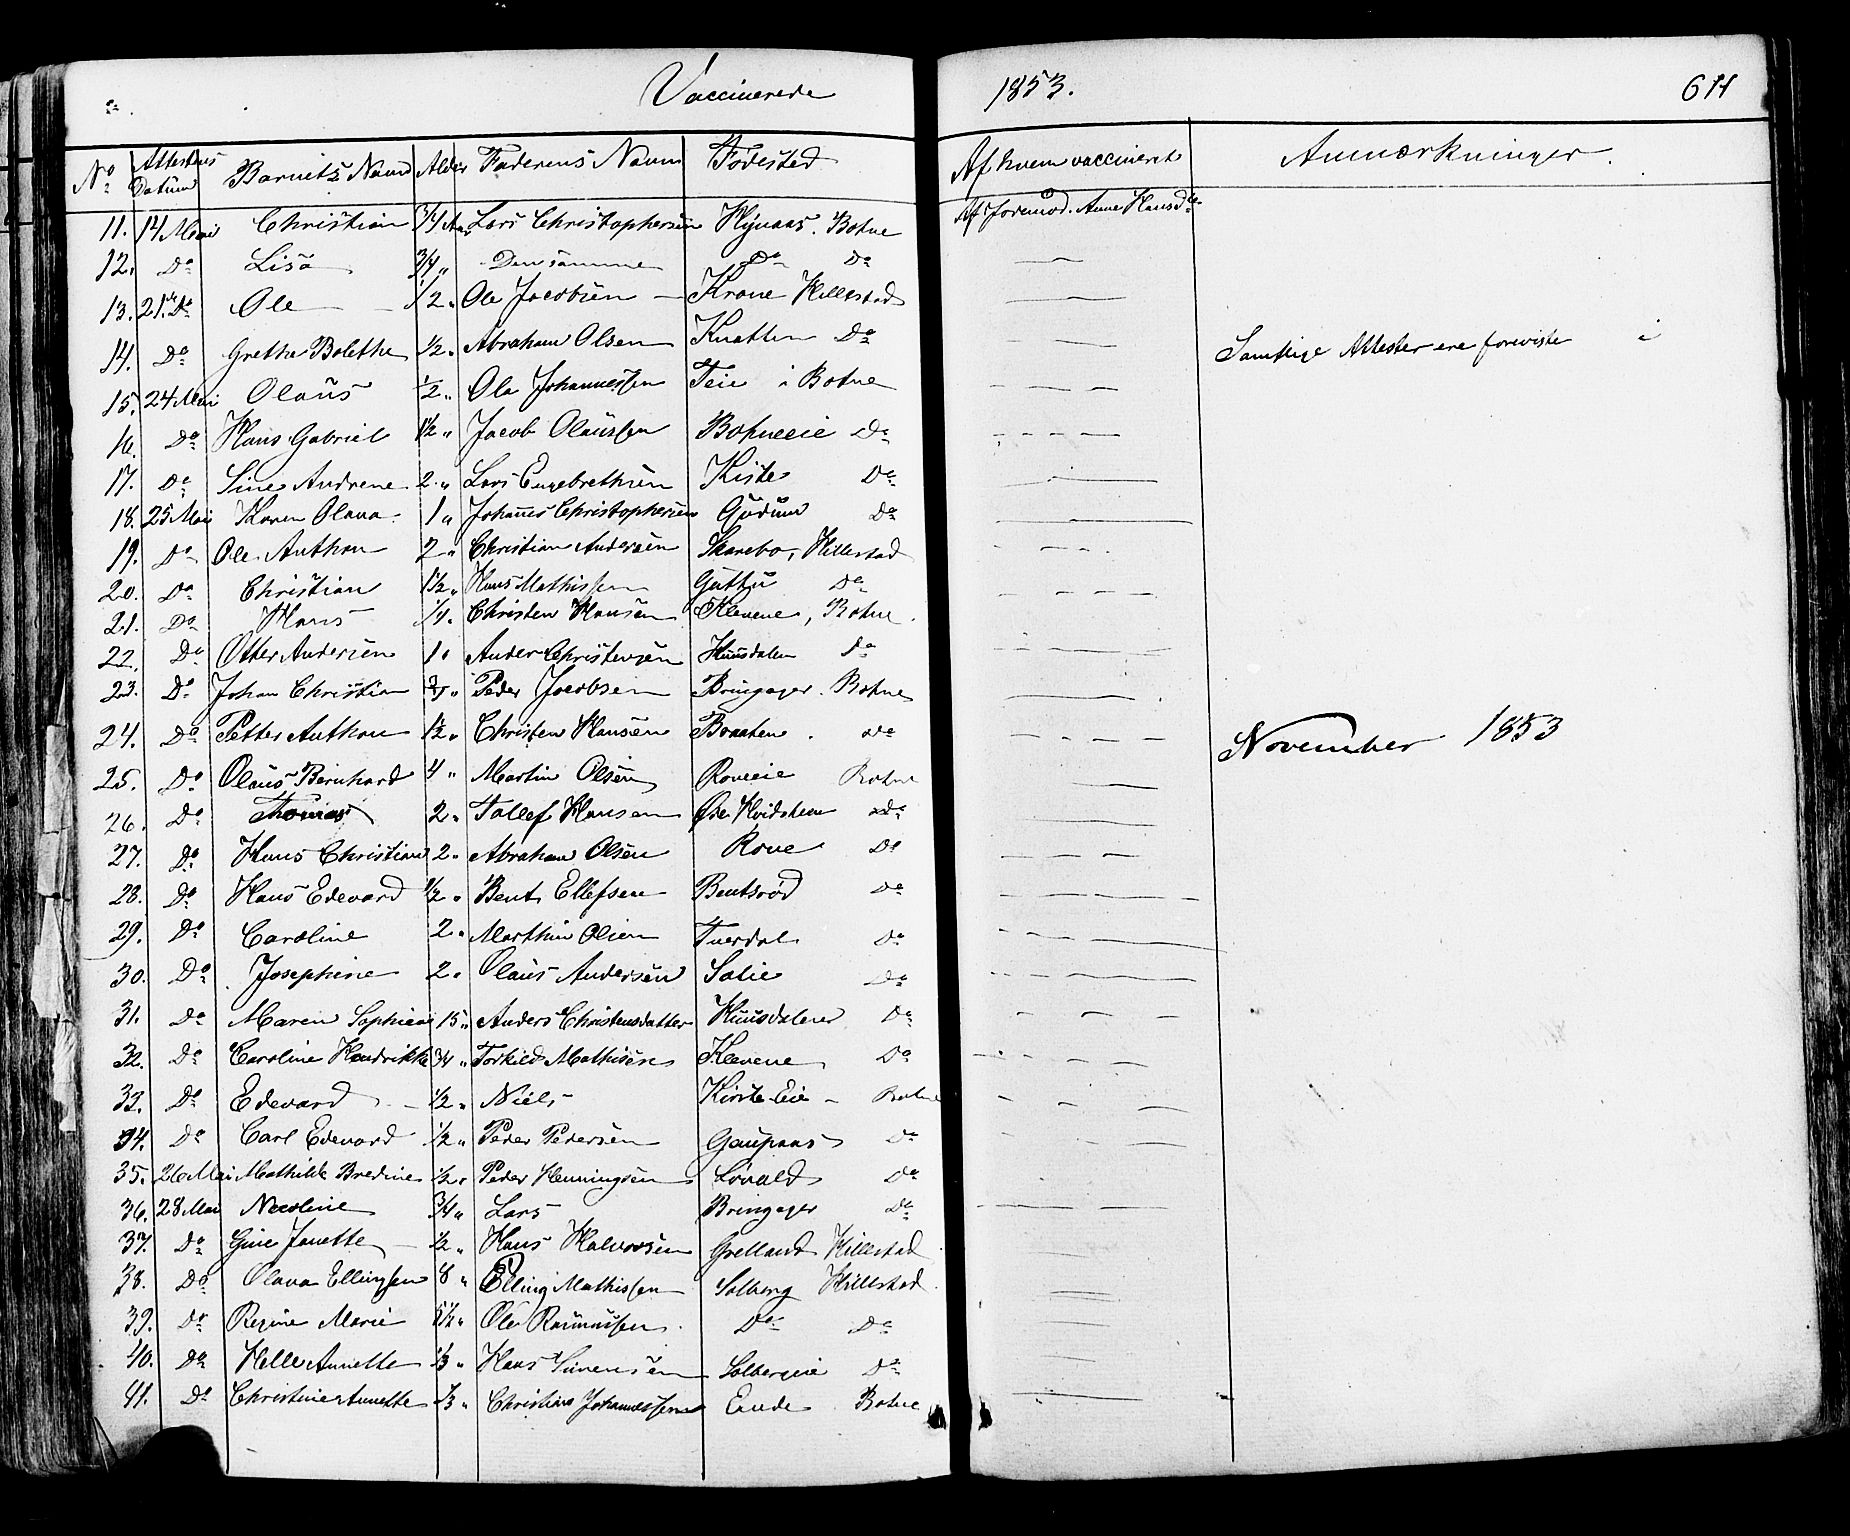 Vaccinerede 1853. 611
No Attestens Datum Barnets Navn Alder Faderens Navn Fødested Af hvem vaccineret Anmærkninger.
11. 14 Mai Christian 3/4 Aar Lars Christophersen Hynaas. Botne Af Jordmod. Anne Hansdtr
12. Do Lisa 3/4 " Densamme Do Do
13. 21. Do Ole 1/2 " Ole Jacobsen Krone Hillestad
14. Do Grethe Bolethe 1/2 " Abraham Olsen Knatten Do Samtlige Attester ere foreviste i
15. 24 Mai Olaüs 1/2 " Ole Johannessen Teie i Botne
16. Do Hans Gabriel 1 1/2 " Jacob Olaüssen Botneeie Do
17. Do Sine Andrene 2 " Lars Engebrethsen Kiste Do
18. 25 Mai Karen Olava 1 " Johannes Christophersen Güdüm Do
19. Do Ole Anthon 2 " Christian Andersen Skarebo, Hillestad
20. Do Christian 1 1/2 " Hans Mathissen Do
21. Do Hans 1/4 " Christen Hansen Klevene, Botne
22. Do Otter Andersen 1 " Anders Christensen Huusdalen Do
23. Do Johan Christian " Peder Jacobsen Bringager. Botne
24. Do Petter Anthon 1 1/2 " Christen Hansen Braaten Do November 1853
25. Do Olaüs Bernhard 4 " Martin Olsen Roveeie Botne
26. Do Thomas 2 " Tollef Hansen Øde Hvidsteen Do
27. Do Hans Christian 2 " Abraham Olsen Rove Do
28. Do Hans Edevard 1/2 " Bent Ellefsen Bentsrød Do
29. Do Caroline 2 " Marthin Olsen Tuerdal Do
30. Do Josephine 2 " Olaüs Andersen Solie Do
31. Do Maren Sophie 15 " Anders Christensdatter Huusdalen Do
32. Do Caroline Hendrikke 3/4 " Torkild Mathisen Klevene Do
33. Do Edevard 1/2 " Niels Kiste Eie Botne
34. Do Carl Edevard 1/2 " Peder Pedersen Gaupaas Do
35. 26 Mai Mathilde Bredine 1/2 " Peder Henningsen Løvald Do
36. 28 Mai Nicoline 3/4 " Lars Bringager Do
37. Do Gine Janette 1/2 " Hans Halvorsen Grelland Hillestad
38. Do Olava Ellingsen 8 " Elling Mathissen Solberg Hillestad
39. Do Regine Marie 5 1/2 " Ole Rasmussen Do Do
40. Do Helle Annette 1/3 " Hans Sørensen Solbergeie Do
41. Do Christine Annette 1/3 " Christian Johannessen Eünde Botne